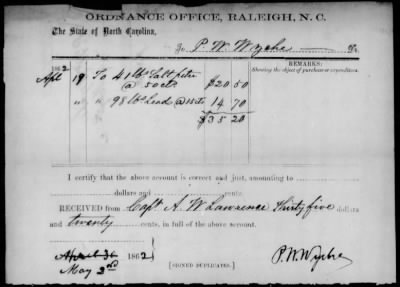 ORDNANCE OFFICE, RALEIGH, N. C.
The State of North Carolina,
To P. W. Wyche Dr.
1862
REMARKS:
Showing the object of purchase or expenditure.
Apl 19 To 41 lbs Saltpetre
@ 50 cts $20 50
" " 98 lbs Lead @ 15 cts 14 70
$35 20
I certify that the above account is correct and just, amounting to
dollars and cents.
RECEIVED from Capt A. W. Lawrence Thirty five dollars
and twenty cents, in full of the above account.
April 30 1862
May 3rd
[SIGNED DUPLICATES.]
P. W. Wyche